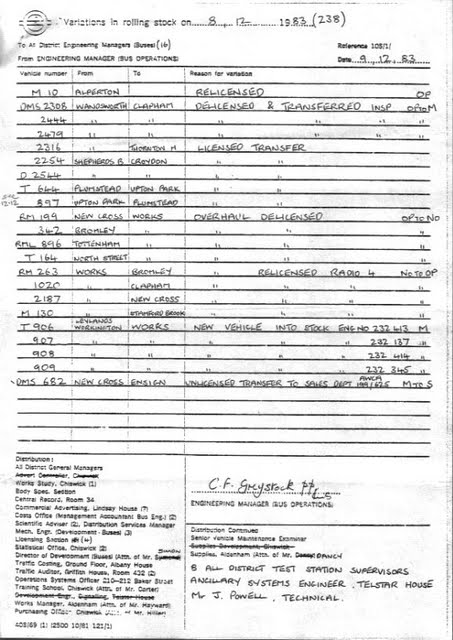 Variations in rolling stock on 8. 12 1983 (238)
To All District Engineering Managers (Buses) (16) Reference 103/1/
From ENGINEERING MANAGER (BUS OPERATIONS) Date 9. 12. 83
Vehicle number From To Reason for variation
M 10 ALPERTON RELICENSED OP
DMS 2308 WANDSWORTH CLAPHAM DELICENSED & TRANSFERRED INSP OP TO M
2444 " " " " " "
2479 " " " " " "
2316 " THORNTON H LICENSED TRANSFER
2254 SHEPHERDS B CROYDON " "
D 2544 " " " "
T 644 PLUMSTEAD UPTON PARK " "
897 UPTON PARK PLUMSTEAD " "
RM 199 NEW CROSS WORKS OVERHAUL DELICENSED OP TO NO
342 BROMLEY " " " "
RML 896 TOTTENHAM " " " "
T 164 NORTH STREET " " " "
RM 263 WORKS BROMLEY " RELICENSED RADIO 4 NO TO OP
1020 " CLAPHAM " " "
2187 " NEW CROSS " " "
M 130 " STAMFORD BROOK " " "
T 906 LEYLANDS WORKINGTON WORKS NEW VEHICLE INTO STOCK ENG NO 232 413 M
907 " " " " " 232 137 "
908 " " " " " 232 414 "
909 " " " " " 232 345 "
DMS 682 NEW CROSS ENSIGN UNLICENSED TRANSFER TO SALES DEPT AWCA 199/625 M TO S
Distribution:
All District General Managers
Works Study, Chiswick (1)
Body Spec. Section
Central Record, Room 34
Commercial Advertising, Lindsay House (7)
Costs Office (Management Accountant Bus Eng.) (2)
Scientific Adviser (2), Distribution Services Manager
Mech. Engr. (Development - Buses) (3)
Licensing Section (4)
Statistical Office, Chiswick (2)
Director of Development (Buses) (Attn. of Mr.
Traffic Costing, Ground Floor, Albany House
Traffic Auditor, Griffith House, Room 422 (2)
Operations Systems Officer 210-212 Baker Street
Training School, Chiswick (Attn. of Mr. Carter)
Development Engr. Signalling, Telstar House
Works Manager, Aldenham (Attn. of Mr. Hayward)
Purchasing Officer Chiswick (Attn. of Mr. Hillier)
403/69 (1) 12500 10/81 121/1)
C. F. Greystock pp
ENGINEERING MANAGER (BUS OPERATIONS)
Distribution Continued
Senior Vehicle Maintenance Examiner
Supplies Development, Chiswick
Supplies, Aldenham (Attn. of Mr. DANCY)
8 ALL DISTRICT TEST STATION SUPERVISORS
ANCILIARY SYSTEMS ENGINEER, TELSTAR HOUSE
Mr J. POWELL, TECHNICAL.